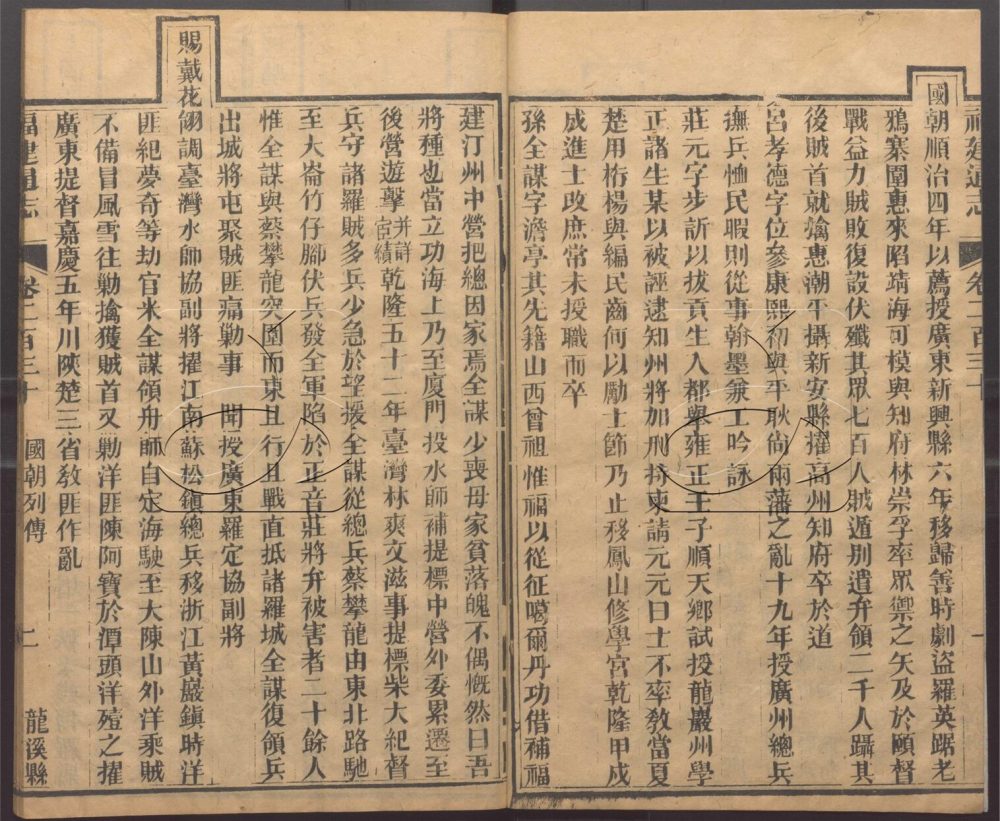 國朝順治四年以薦授廣東新興縣六年移歸善時劇盜羅英踞老
鴉寨圍惠來陷靖海可模與知府林崇孚率眾禦之矢及於頤督
戰益力賊敗復設伏殲其眾七百人賊遁別遣弁領二千人躡其
後賊首就擒惠潮平攝新安縣擢高州知府卒於道
呂孝德字位參康熙初與平耿尚兩藩之亂十九年授廣州總兵
撫兵恤民暇則從事翰墨兼工吟詠
莊元字步訢以拔貢生入都舉雍正壬子順天鄉試授龍巖州學
正諸生某以被誣逮知州將加刑持柬請元元曰士不率教當夏
楚用桁楊與編民齒何以勵士節乃止移鳳山修學宮乾隆甲戌
成進士改庶常未授職而卒
孫全謀字澹亭其先籍山西曾祖惟福以從征噶爾丹功借補福
建汀州中營把總因家焉全謀少喪母家貧落魄不偶慨然曰吾
將種也當立功海上乃至廈門投水師補提標中營外委累遷至
後營遊擊并詳宦績乾隆五十二年臺灣林爽文滋事提標柴大紀督
兵守諸羅賊多兵少急於望援全謀從總兵蔡攀龍由東北路馳
至大崙竹仔腳伏兵發全軍陷於正音莊將弁被害者二十餘人
惟全謀與蔡攀龍突圍而東且行且戰直抵諸羅城全謀復領兵
出城將屯聚賊匪痛勦事 聞授廣東羅定協副將
賜戴花翎調臺灣水師協副將擢江南蘇松鎮總兵移浙江黃巖鎮時洋
匪紀夢奇等劫官米全謀領舟師自定海駛至大陳山外洋乘賊
不備冒風雪往勦擒獲賊首又勦洋匪陳阿寶於潭頭洋殪之擢
廣東提督嘉慶五年川陝楚三省教匪作亂
福建通志 卷二百三十 國朝列傳 二 龍溪縣